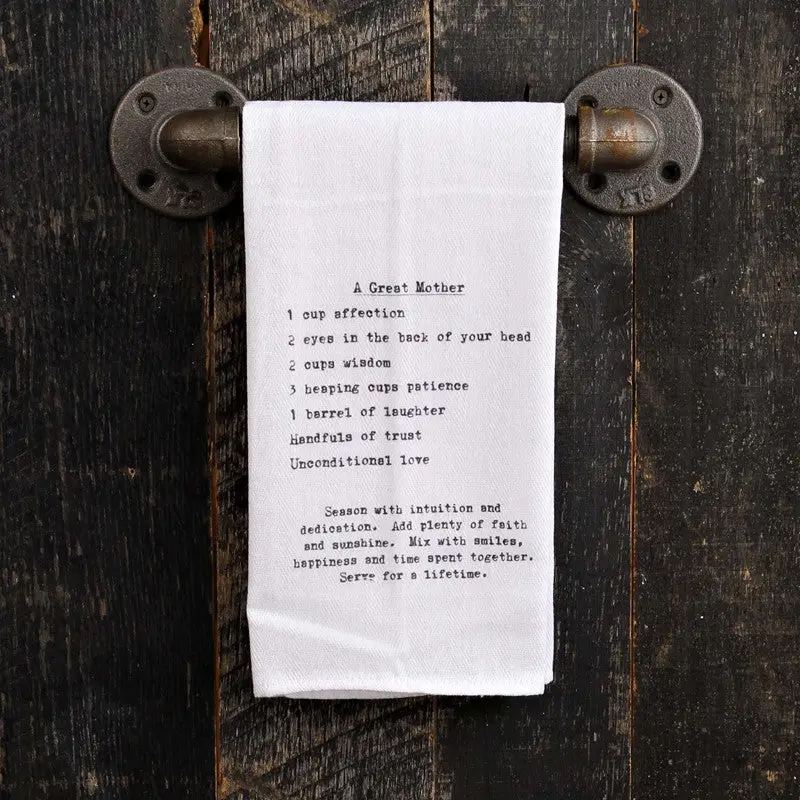 A Great Mother
1 cup affection
2 eyes in the back of your head
2 cups wisdom
3 heaping cups patience
1 barrel of laughter
Handfuls of trust
Unconditional love
Season with intuition and
dedication. Add plenty of faith
and sunshine. Mix with smiles,
happiness and time spent together.
Serve for a lifetime.